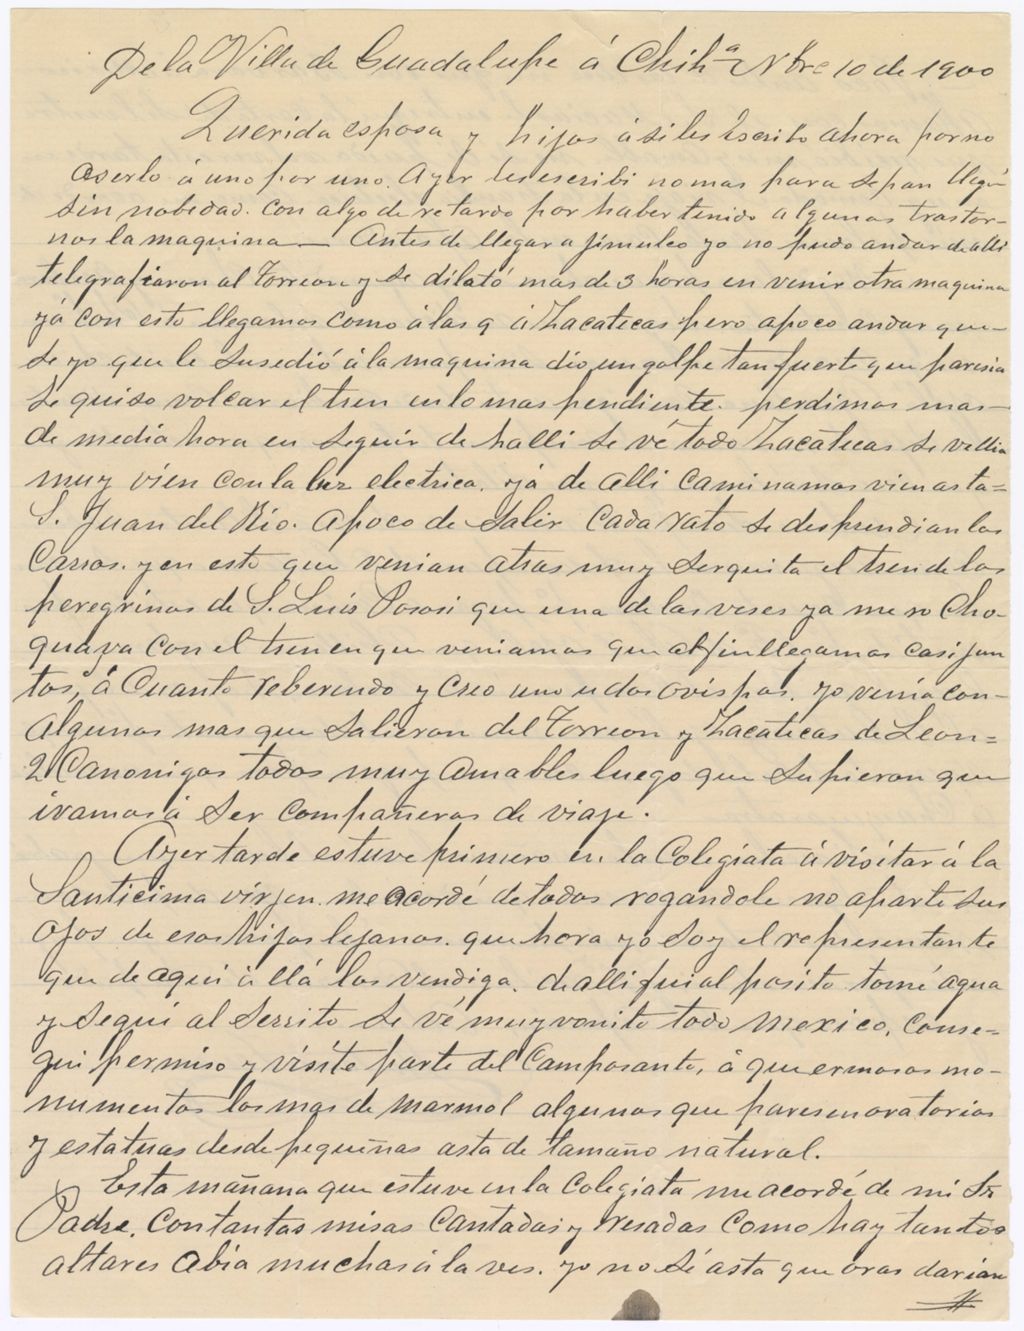 De la Villa de Guadalupe á Chihª Nbre 10 de 1900
Querida esposa y hijos ási les escribo ahora por no
aserlo á uno por uno. Ayer les escribi no mas para sepan llegé
sin nobedad. con algo de retardo por haber tenido algunos trastor-
nos la maquina — Antes de llegar a Jimulco yo no pudo andar de alli
telegrafiaron al Torreon y se dilató mas de 3 horas en venir otra maquina
yá con esto llegamos como á las 9 á Zacatecas pero apoco andar que-
se yo que le susedió á la maquina dio un golpe tan fuerte que paresia
se quiso volcar el tren en lo mas pendiente. perdimos mas-
de media hora en seguir de halli se vé todo Zacatecas se vellia
muy vien con la luz electrica. yá de alli caminamos vien asta-
S. Juan del Rio. apoco de salir cada rato se desprendian los
Carros. y en esto que venian atras muy serquita el tren de los
peregrinos de S. Luis Pososi que una de las veses ya mero cho-
quava con el tren en que veniamos que al fin llegamos casi jun
tos, á Cuanto reberendo y creo uno u dos ovispos. yo venia con-
algunos mas que salieron del Torreon y Zacatecas de Leon=
2 Canonigos todos muy amables luego que supieron que
ivamos á ser compañeros de viaje.
Ayer tarde estuve primero en la Colegiata á visitar á la
Santicima virjen. me acordé de todos rogandole no aparte sus
ojos de esos hijos lejanos. que hora yo soy el representante
que de aqui á llá los vendiga. de alli fui al posito tomé agua
y segui al serrito se vé muy vonito todo Mexico. Conse-
gui permiso y visité parte del Camposanto, á que ermosos mo-
numentos los mas de marmol algunos que paresen oratorios
y estatuas desde pequeñas asta de tamaño natural.
Esta mañana que estuve en la Colegiata me acordé de mi Sr
Padre. Con tantas misas Cantadas y resadas como hay tantos
altares abia muchas á la ves. yo no sé asta que oras darian